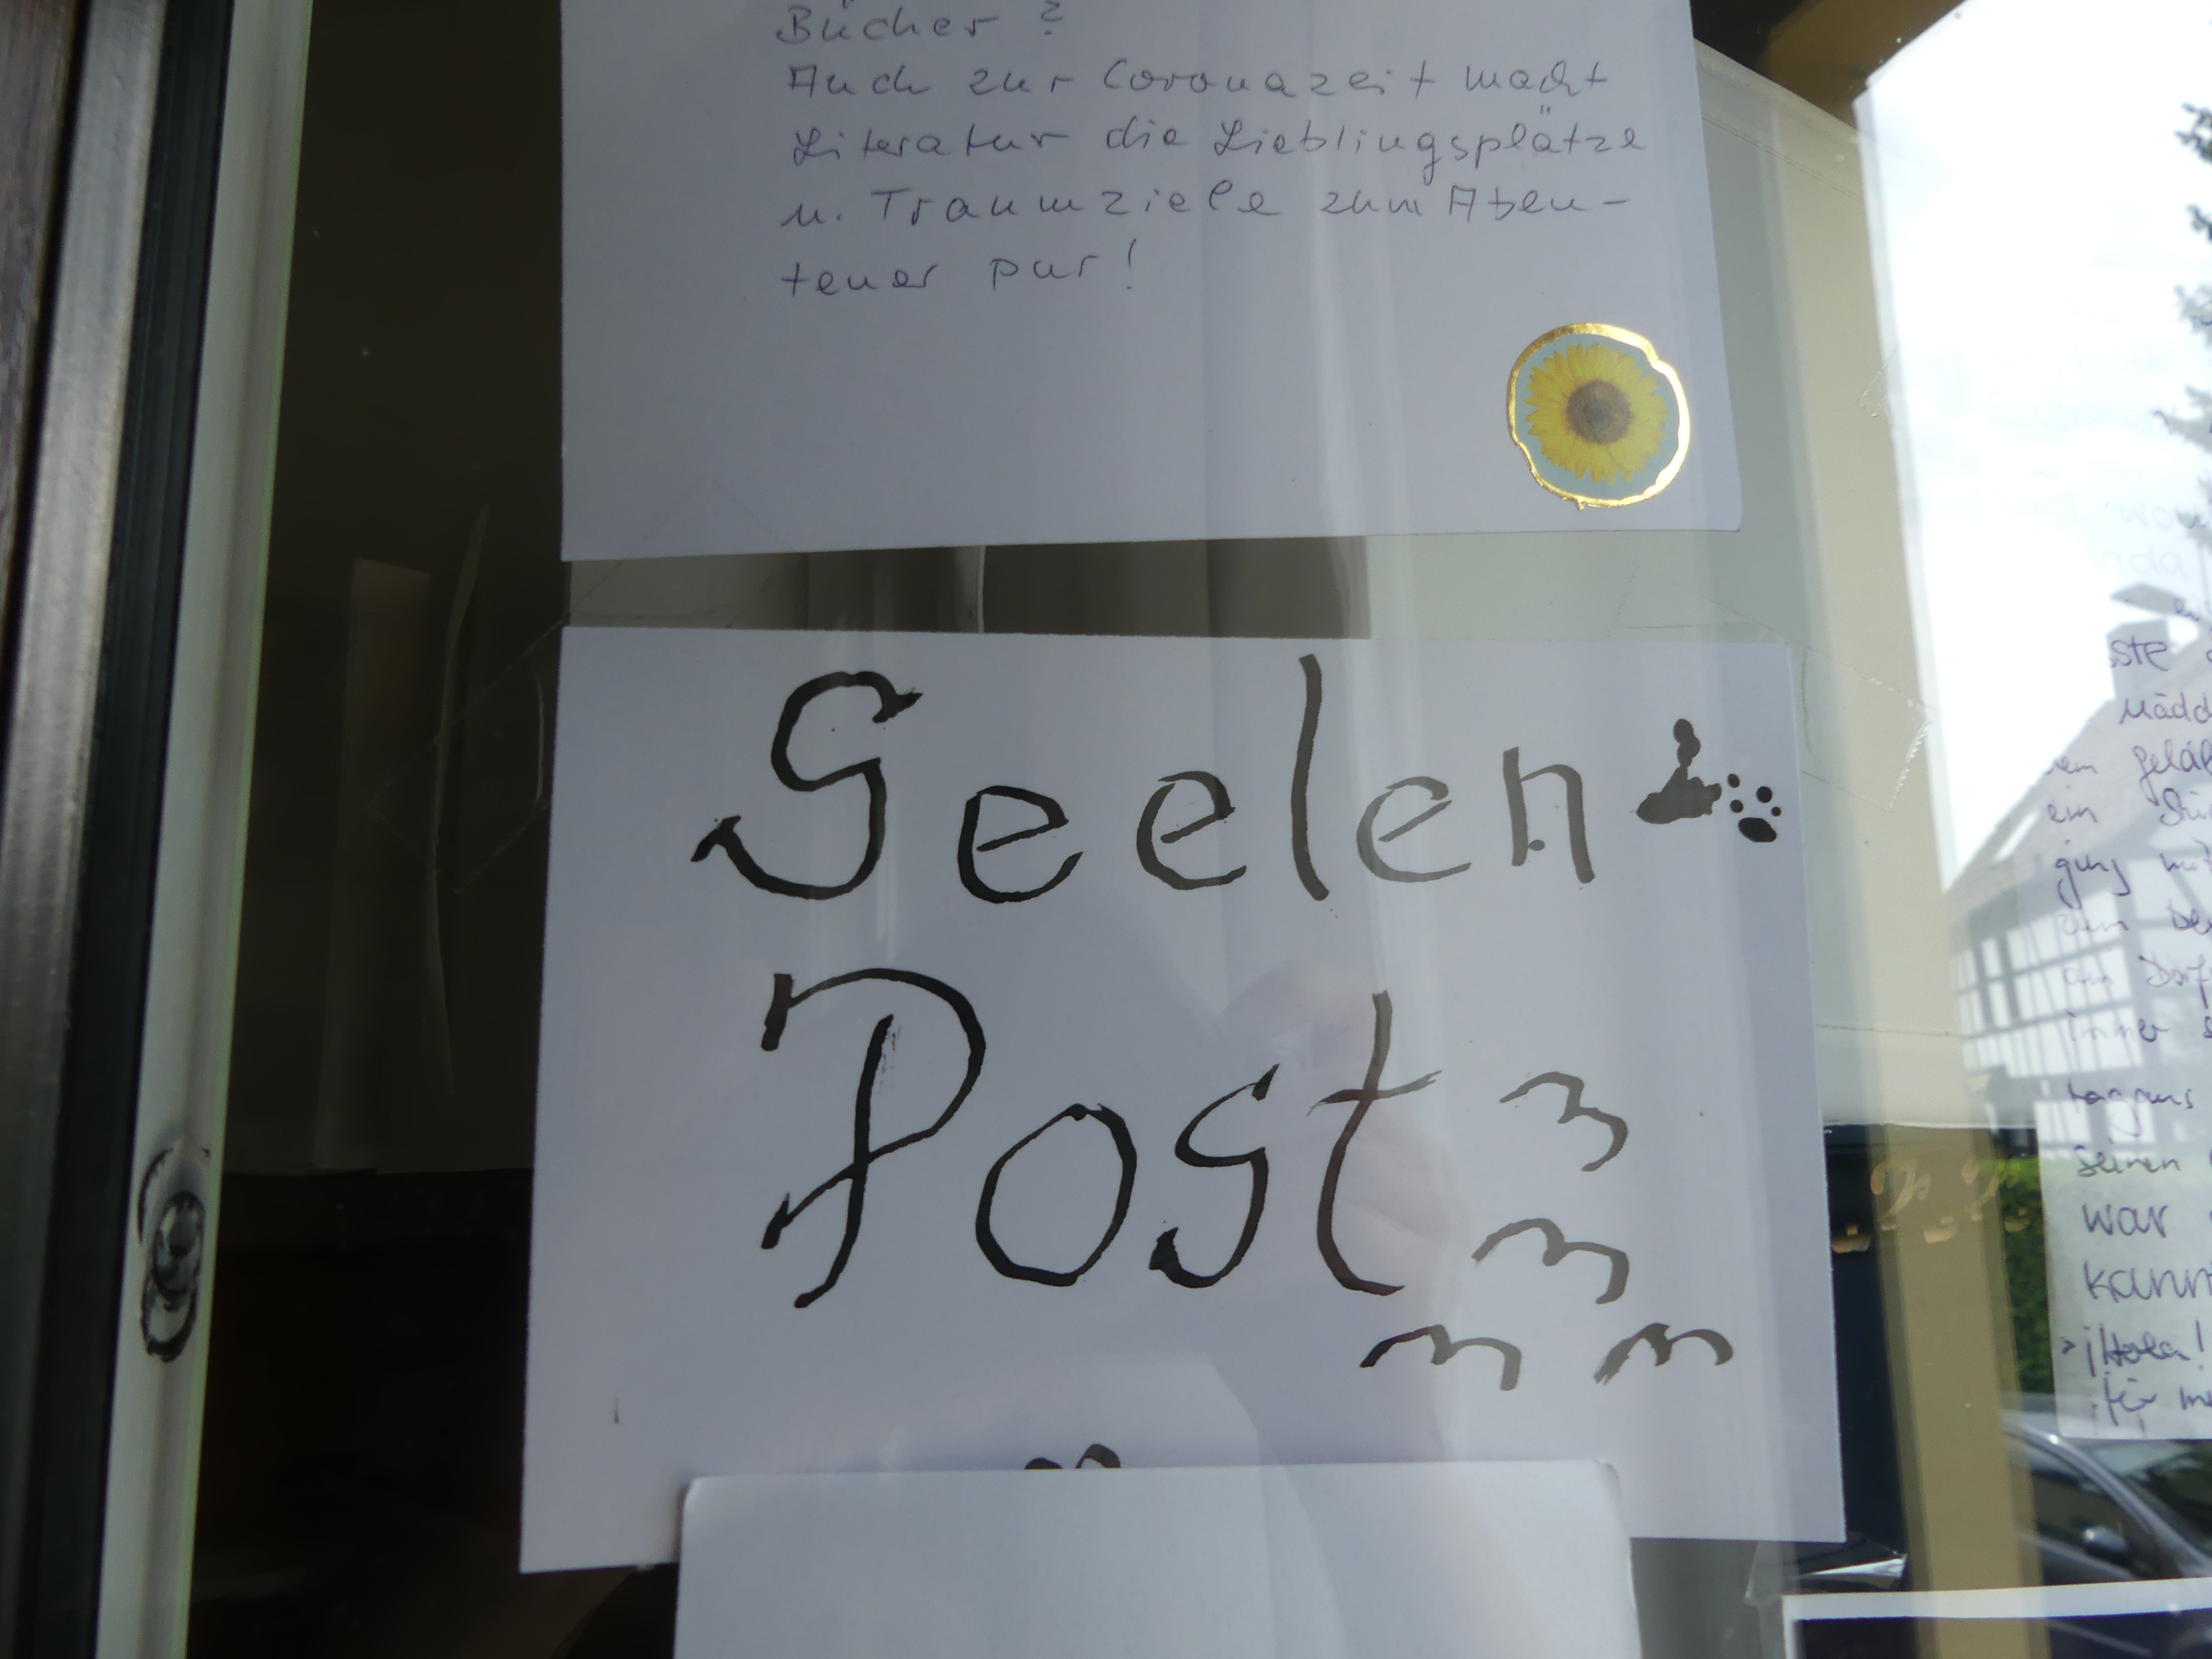 Bücher?
Auch zur Coronazeit macht
Literatur die Lieblingsplätze
u. Traumziele zum Aben-
teuer pur!
Seelen
Post
ste
Mädc
ein
ging mi
Dorf
immer
tagaus
seinen
war
kann
¡Hola!
für